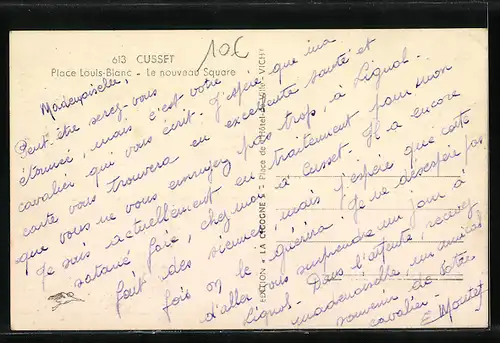 613 CUSSET
Place Louis-Blanc - Le nouveau Square
10€
Mademoiselle,
Peut-être serez-vous
étonnée, mais c'est votre
cavalier qui vous écrit. J'espère que ma
carte vous trouvera en excellente santé et
que vous ne vous ennuyez pas trop, à Lignol.
Je suis actuellement en traitement pour mon
satané foie, chez moi à Cusset. Il a encore
fait des siennes, mais j'espère que cette
fois on le guérira. Je ne désespère pas
d'aller vous surprendre un jour à
Lignol. Dans l'attente, recevez
mademoiselle un amical
souvenir de votre
cavalier.
E. Moutet
EDITION - LA CIGOGNE - Place de l'Hôtel-de-Ville - VICHY